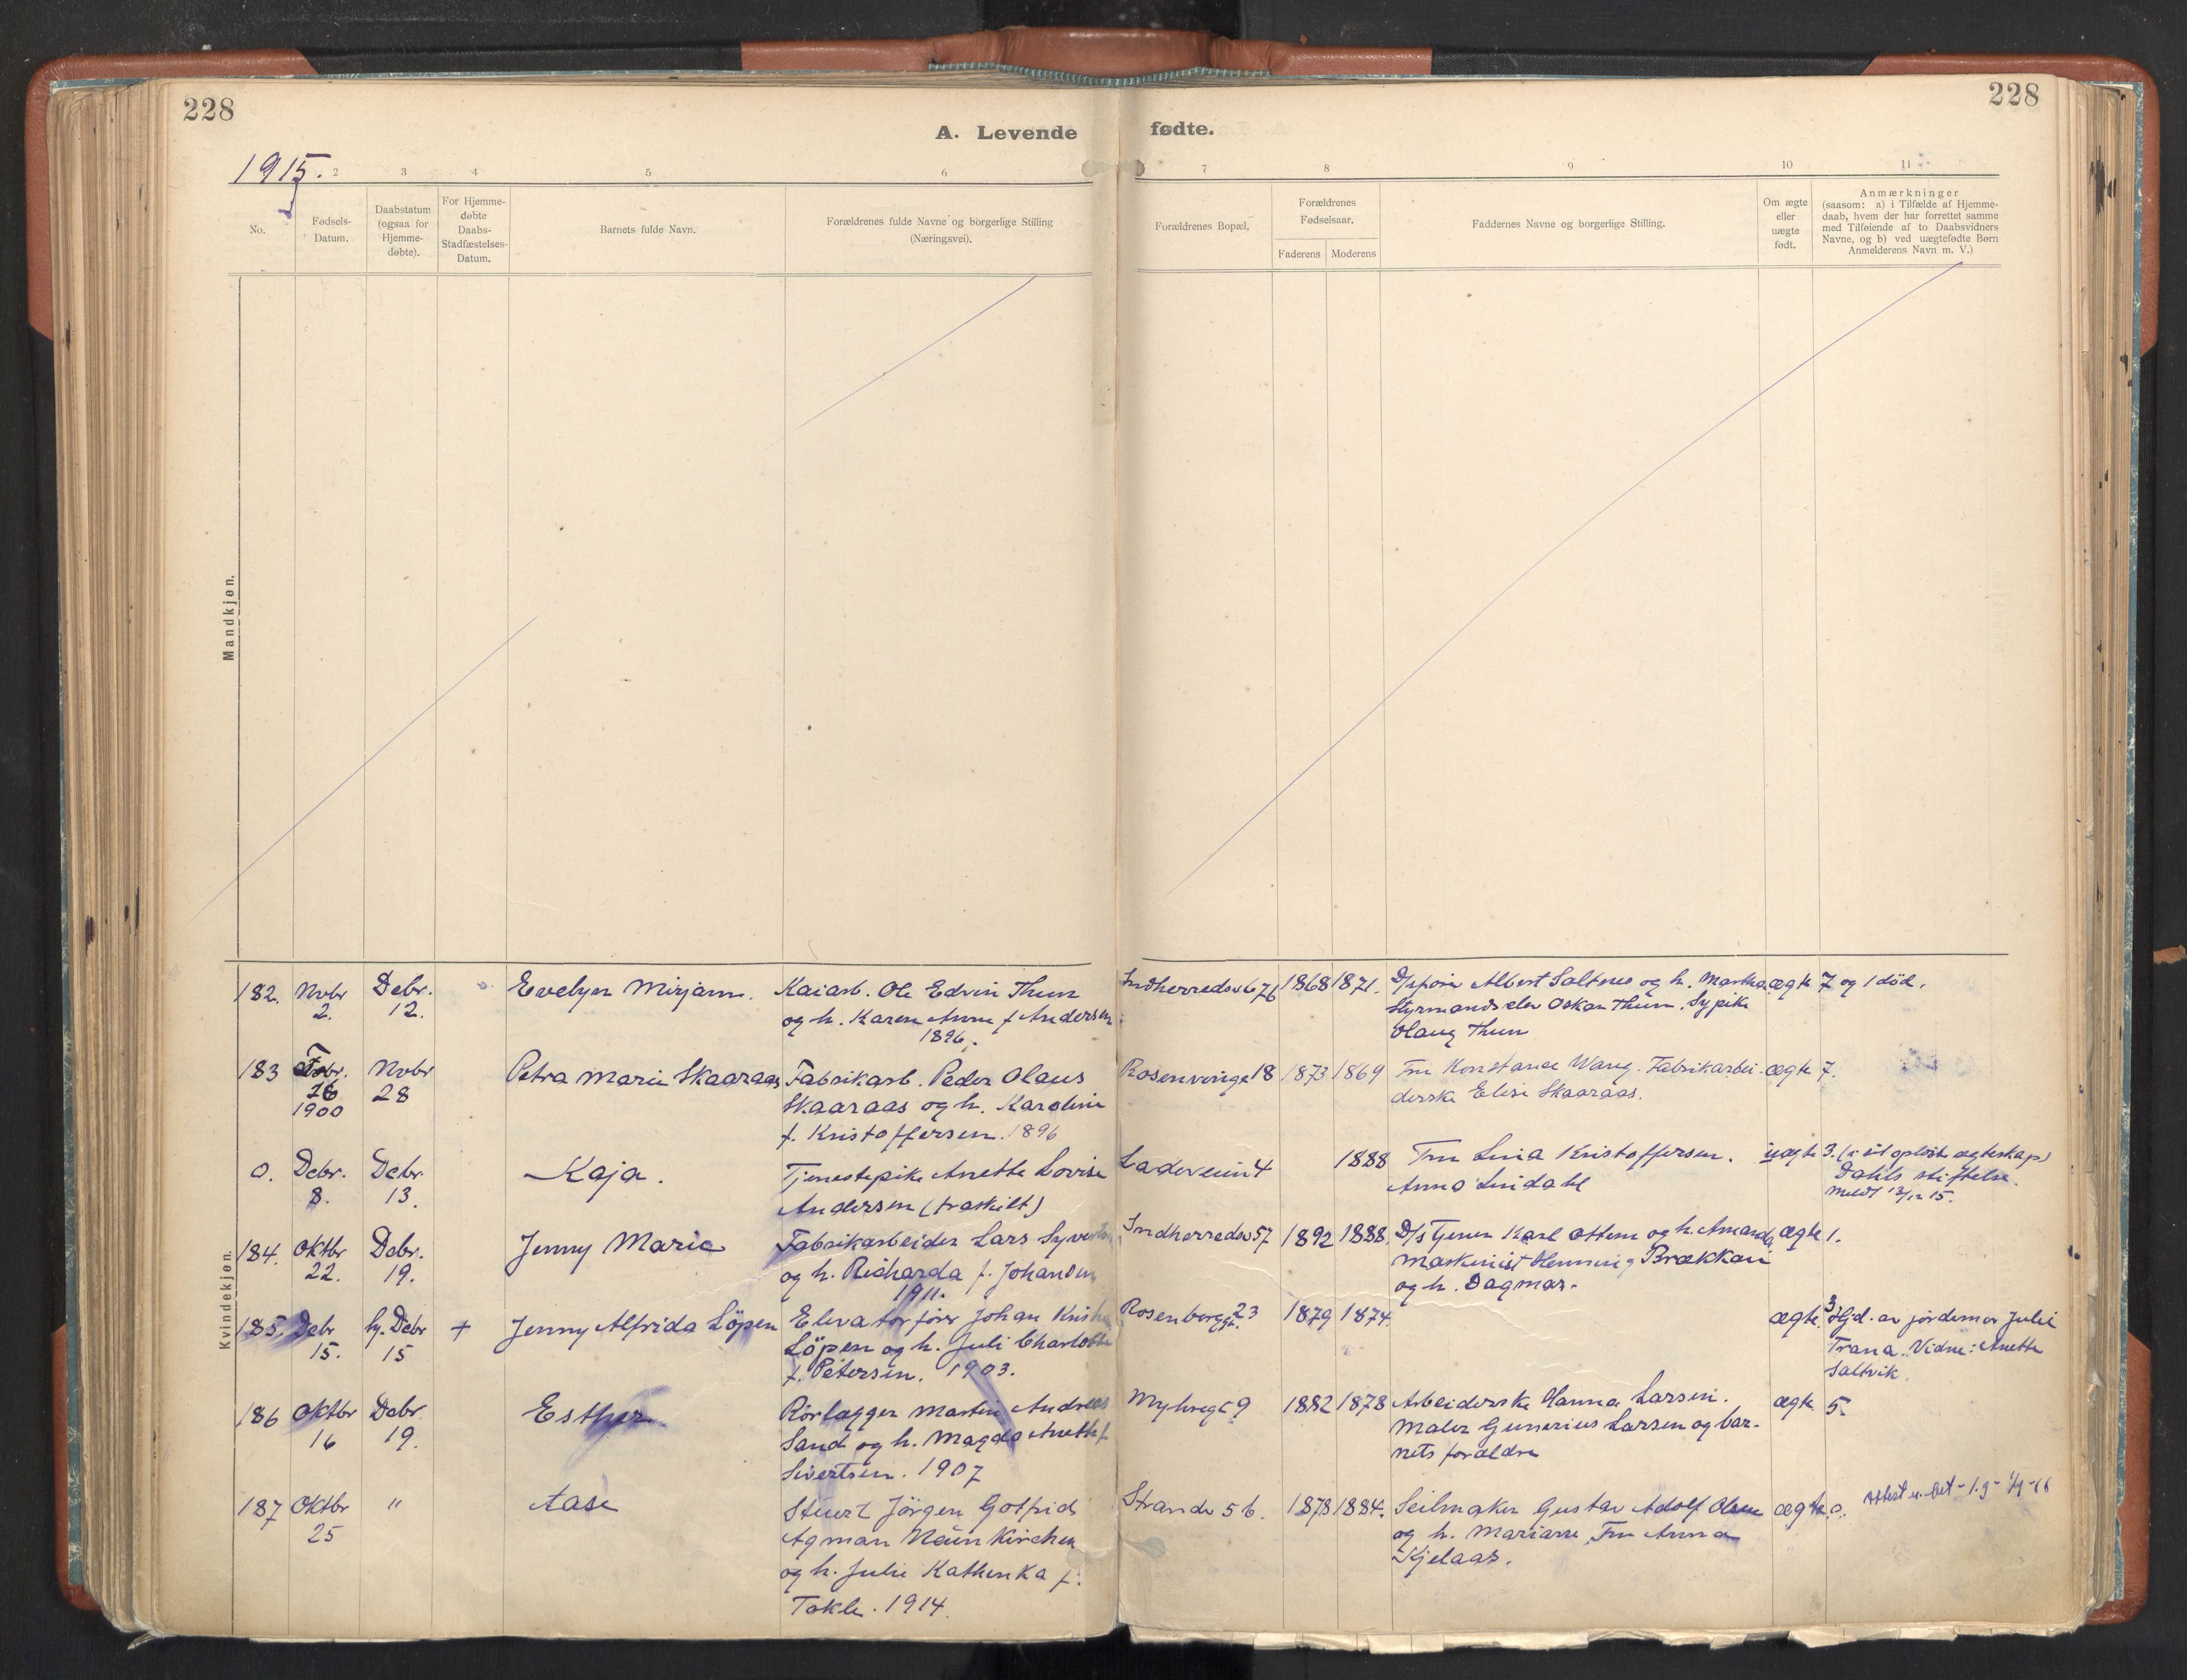 228
228
A. Levende fødte.
1915.
2 3 4 5 6 7 8 9 10 11
No.
Fødsels-
Datum.
Daabstatum
(ogsaa for
Hjemme-
døbte).
For Hjemme-
døbte
Daabs-
Stadfæstelses-
Datum.
Barnets fulde Navn.
Forældrenes fulde Navne og borgerlige Stilling
(Næringsvei).
Forældrenes Bopæl,
Forældrenes
Fødselsaar.
Faderens Moderens
Faddernes Navne og borgerlige Stilling.
Om ægte
eller
uægte
født.
Anmærkninger
(saasom: a) i Tilfælde af Hjemme-
daab, hvem der har forrettet samme
med Tilføiende af to Daabsvidners
Navne, og b) ved uægtefødte Børn
Anmelderens Navn m. V.)
Mandkjøn.
Kvindekjøn.
182. Novbr Debr. Evelyn Mirjam. Kaiarb. Ole Edvin Thun Indherredsv 676 1868 1871. Albert Saltnes og h. Martha ægte 7 og 1 död.
2. 12. og h. Karen Anna f. Andersen Styrmandselev Oskar Thun. Sypike
1896. Olaug Thun
183 Novbr Petra Marie Skaaraas Fabrikarb. Peder Olaus Rosenvinge 18 1873 1869 Fru Konstance Wang. Fabrikarbei- ægte 7.
26 28 Skaaraas og h. Karoline derske Elise Skaaraas.
1900 f. Kristoffersen. 1896
0. Debr. Debr. Kaja. Tjenestepike Anette Lovise Ladeveien 4 1888 Fru Lina Kristoffersen. uægte 3. (i et oplöst ægteskap)
8. 13. Andersen (fraskilt) Anna Lindahl Dahls stiftelse.
Meldt 13/12 15.
184. Oktbr Debr. Jenny Marie Fabrikarbeider Lars Indherredsv 57 1892 1888. D/s tjener Karl Ottem og h. Amanda ægte 1.
22. 19. og h. Richarda f. Johansen Maskinist Henning Brækkan
1911. og h. Dagmar.
185. Debr hj. Debr + Jenny Alfrida Löpen Elevatorförer Johan Rosenborggt. 23 1879 1874. ægte 3 Hjd. av jordemor Julie
15. 15 Löpen og h. Juli Charlotte Trana. Vidne: Anette
f. Petersen. 1903. Saltvik.
186 Oktbr Debr. Esther Rörlægger Martin Andreas 9 1882 1878 Arbeiderske Hanna Larsen. ægte 5.
16 19. Sand og h. Magda Anette f. Maler Gunerius Larsen og bar-
Sivertsen. 1907 nets forældre
187 Oktbr " Aase Stuert Jörgen Gotfrid Strandv 56. 1878 1884. Seilmaker Gustav Adolf Olsen ægte 0.
25 Agman og h. Marianne, Fru Anna
og h. Julie Kathinka f. Kjelaas.
Takle. 1914.